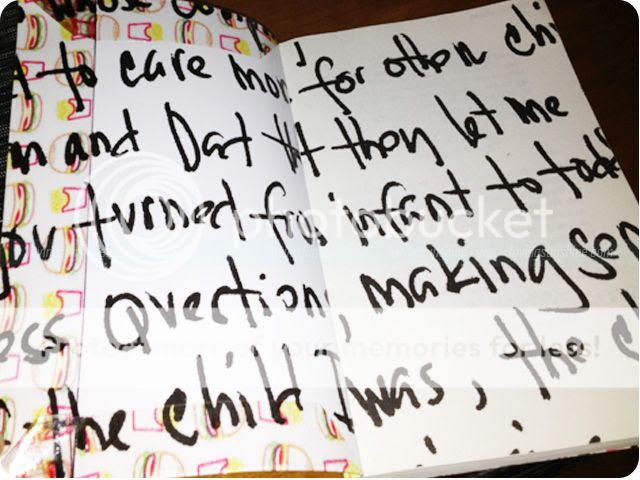 whose
to care mor for other chi
and Dad tht they let me
you turned from infant to todd
ess Question, making sen
the child I was, the c
photobucket
more of your memories for less!